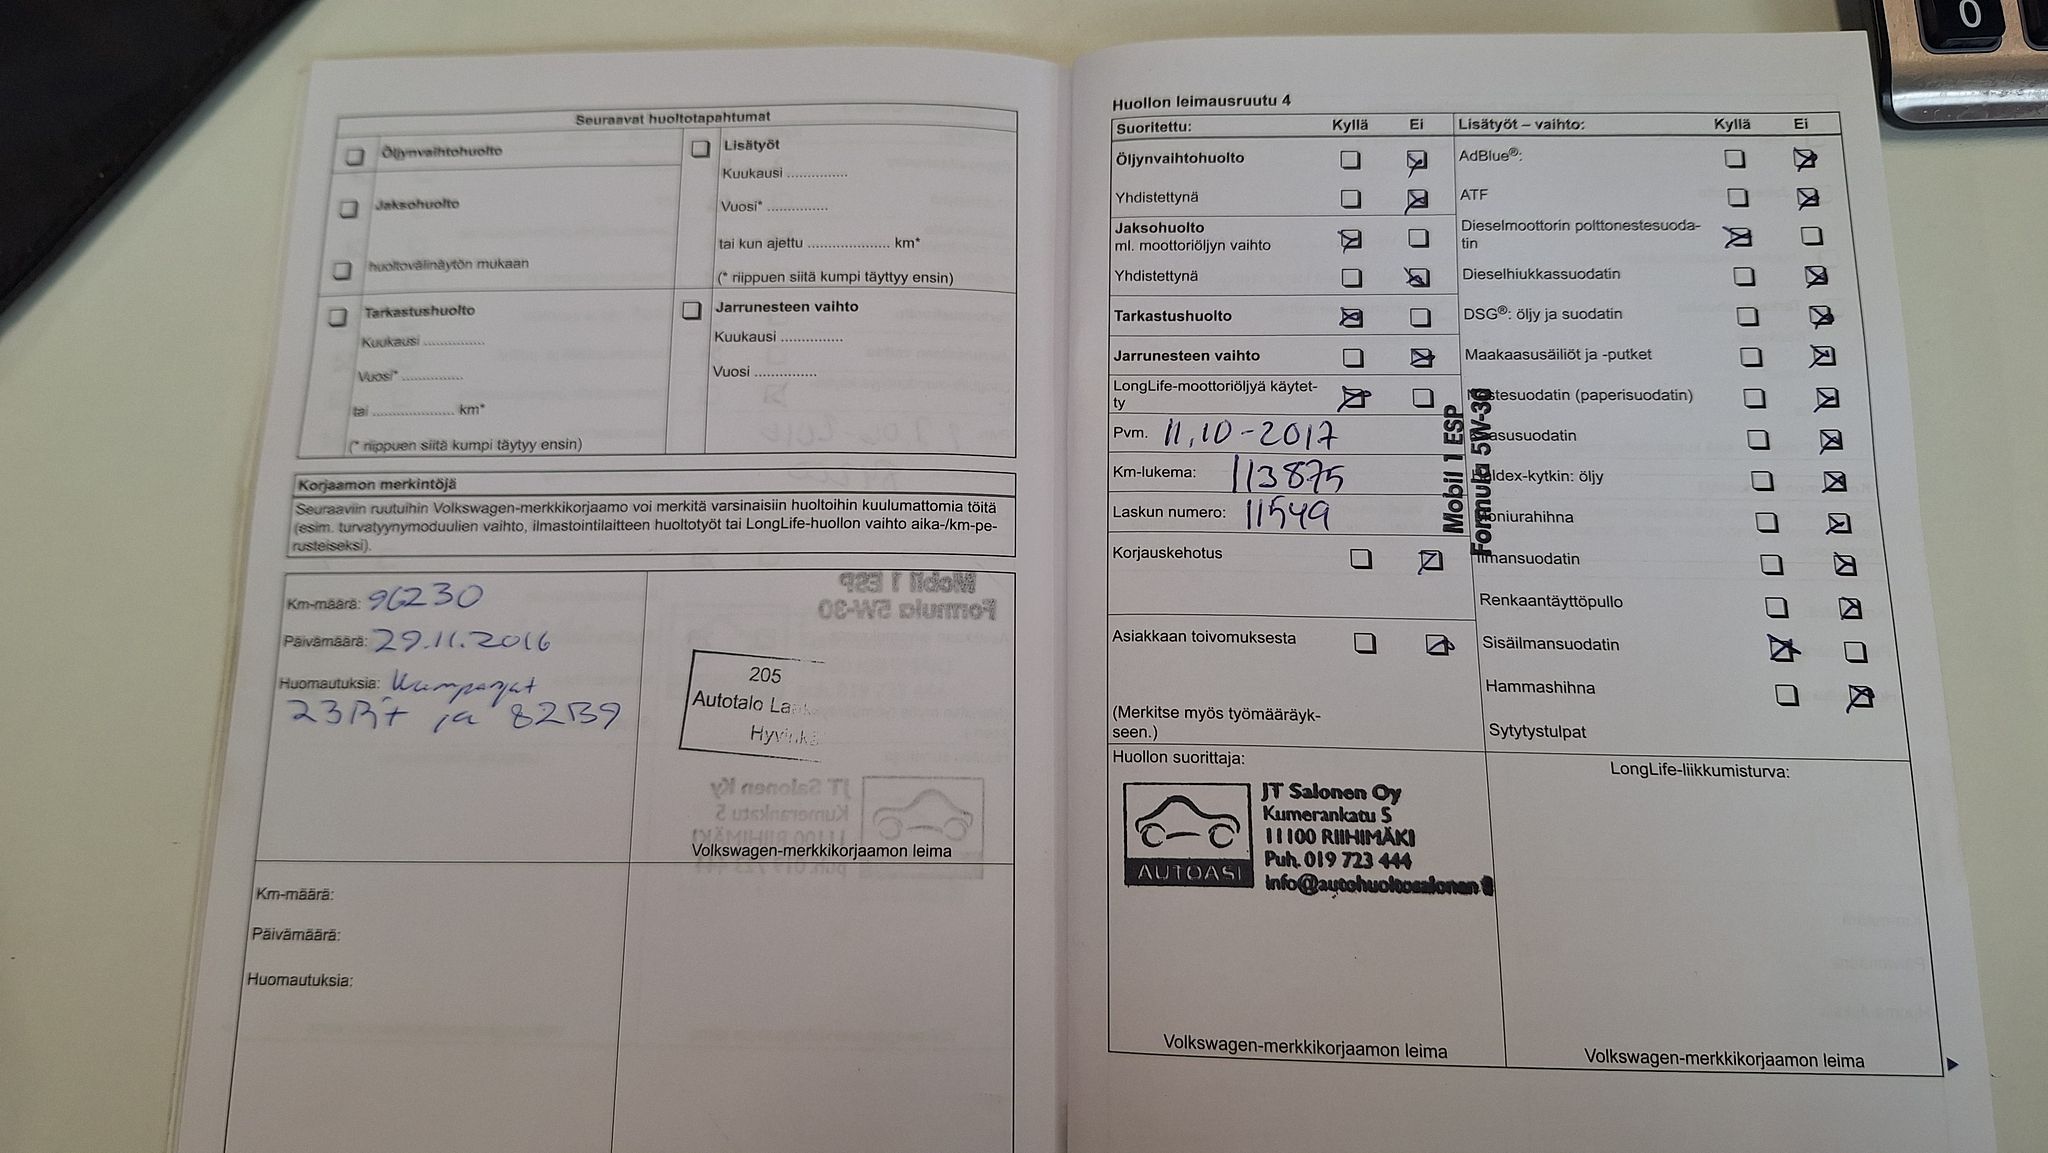 Seuraavat huoltotapahtumat
Öljynvaihtohuolto
Jaksohuolto
huoltovälinäytön mukaan
Lisätyöt
Kuukausi ...............
Vuosi* ...............
tai kun ajettu .................... km*
(* riippuen siitä kumpi täyttyy ensin)
Tarkastushuolto
Kuukausi ...............
Vuosi* ...............
tai .................... km*
(* riippuen siitä kumpi täytyy ensin)
Jarrunesteen vaihto
Kuukausi ...............
Vuosi ...............
Korjaamon merkintöjä
Seuraaviin ruutuihin Volkswagen-merkkikorjaamo voi merkitä varsinaisiin huoltoihin kuulumattomia töitä
(esim. turvatyynymoduulien vaihto, ilmastointilaitteen huoltotyöt tai LongLife-huollon vaihto aika-/km-pe-
rusteiseksi).
Km-määrä: 96230
Päivämäärä: 29.11.2016
Huomautuksia: Kampanjat
ja 82B9
205
Autotalo
Hyvinkä
Volkswagen-merkkikorjaamon leima
Km-määrä:
Päivämäärä:
Huomautuksia:
Huollon leimausruutu 4
Suoritettu: Kyllä Ei
Öljynvaihtohuolto
Yhdistettynä
Jaksohuolto
ml. moottoriöljyn vaihto
Yhdistettynä
Tarkastushuolto
Jarrunesteen vaihto
LongLife-moottoriöljyä käytet-
ty
Pvm. 11.10-2017
Km-lukema: 113875
Laskun numero: 11549
Korjauskehotus
Asiakkaan toivomuksesta
(Merkitse myös työmääräyk-
seen.)
Mobil 1 ESP
Formula 5W-30
Lisätyöt – vaihto: Kyllä Ei
AdBlue®:
ATF
Dieselmoottorin polttonestesuoda-
tin
Dieselhiukkassuodatin
DSG®: öljy ja suodatin
Maakaasusäiliöt ja -putket
stesuodatin (paperisuodatin)
asusuodatin
ldex-kytkin: öljy
oniurahihna
Ilmansuodatin
Renkaantäyttöpullo
Sisäilmansuodatin
Hammashihna
Sytytystulpat
Huollon suorittaja:
AUTOASI
JT Salonen Oy
Kumerankatu 5
11100 RIIHIMÄKI
Puh. 019 723 444
info@autohuoltosalonen.fi
Volkswagen-merkkikorjaamon leima
LongLife-liikkumisturva:
Volkswagen-merkkikorjaamon leima